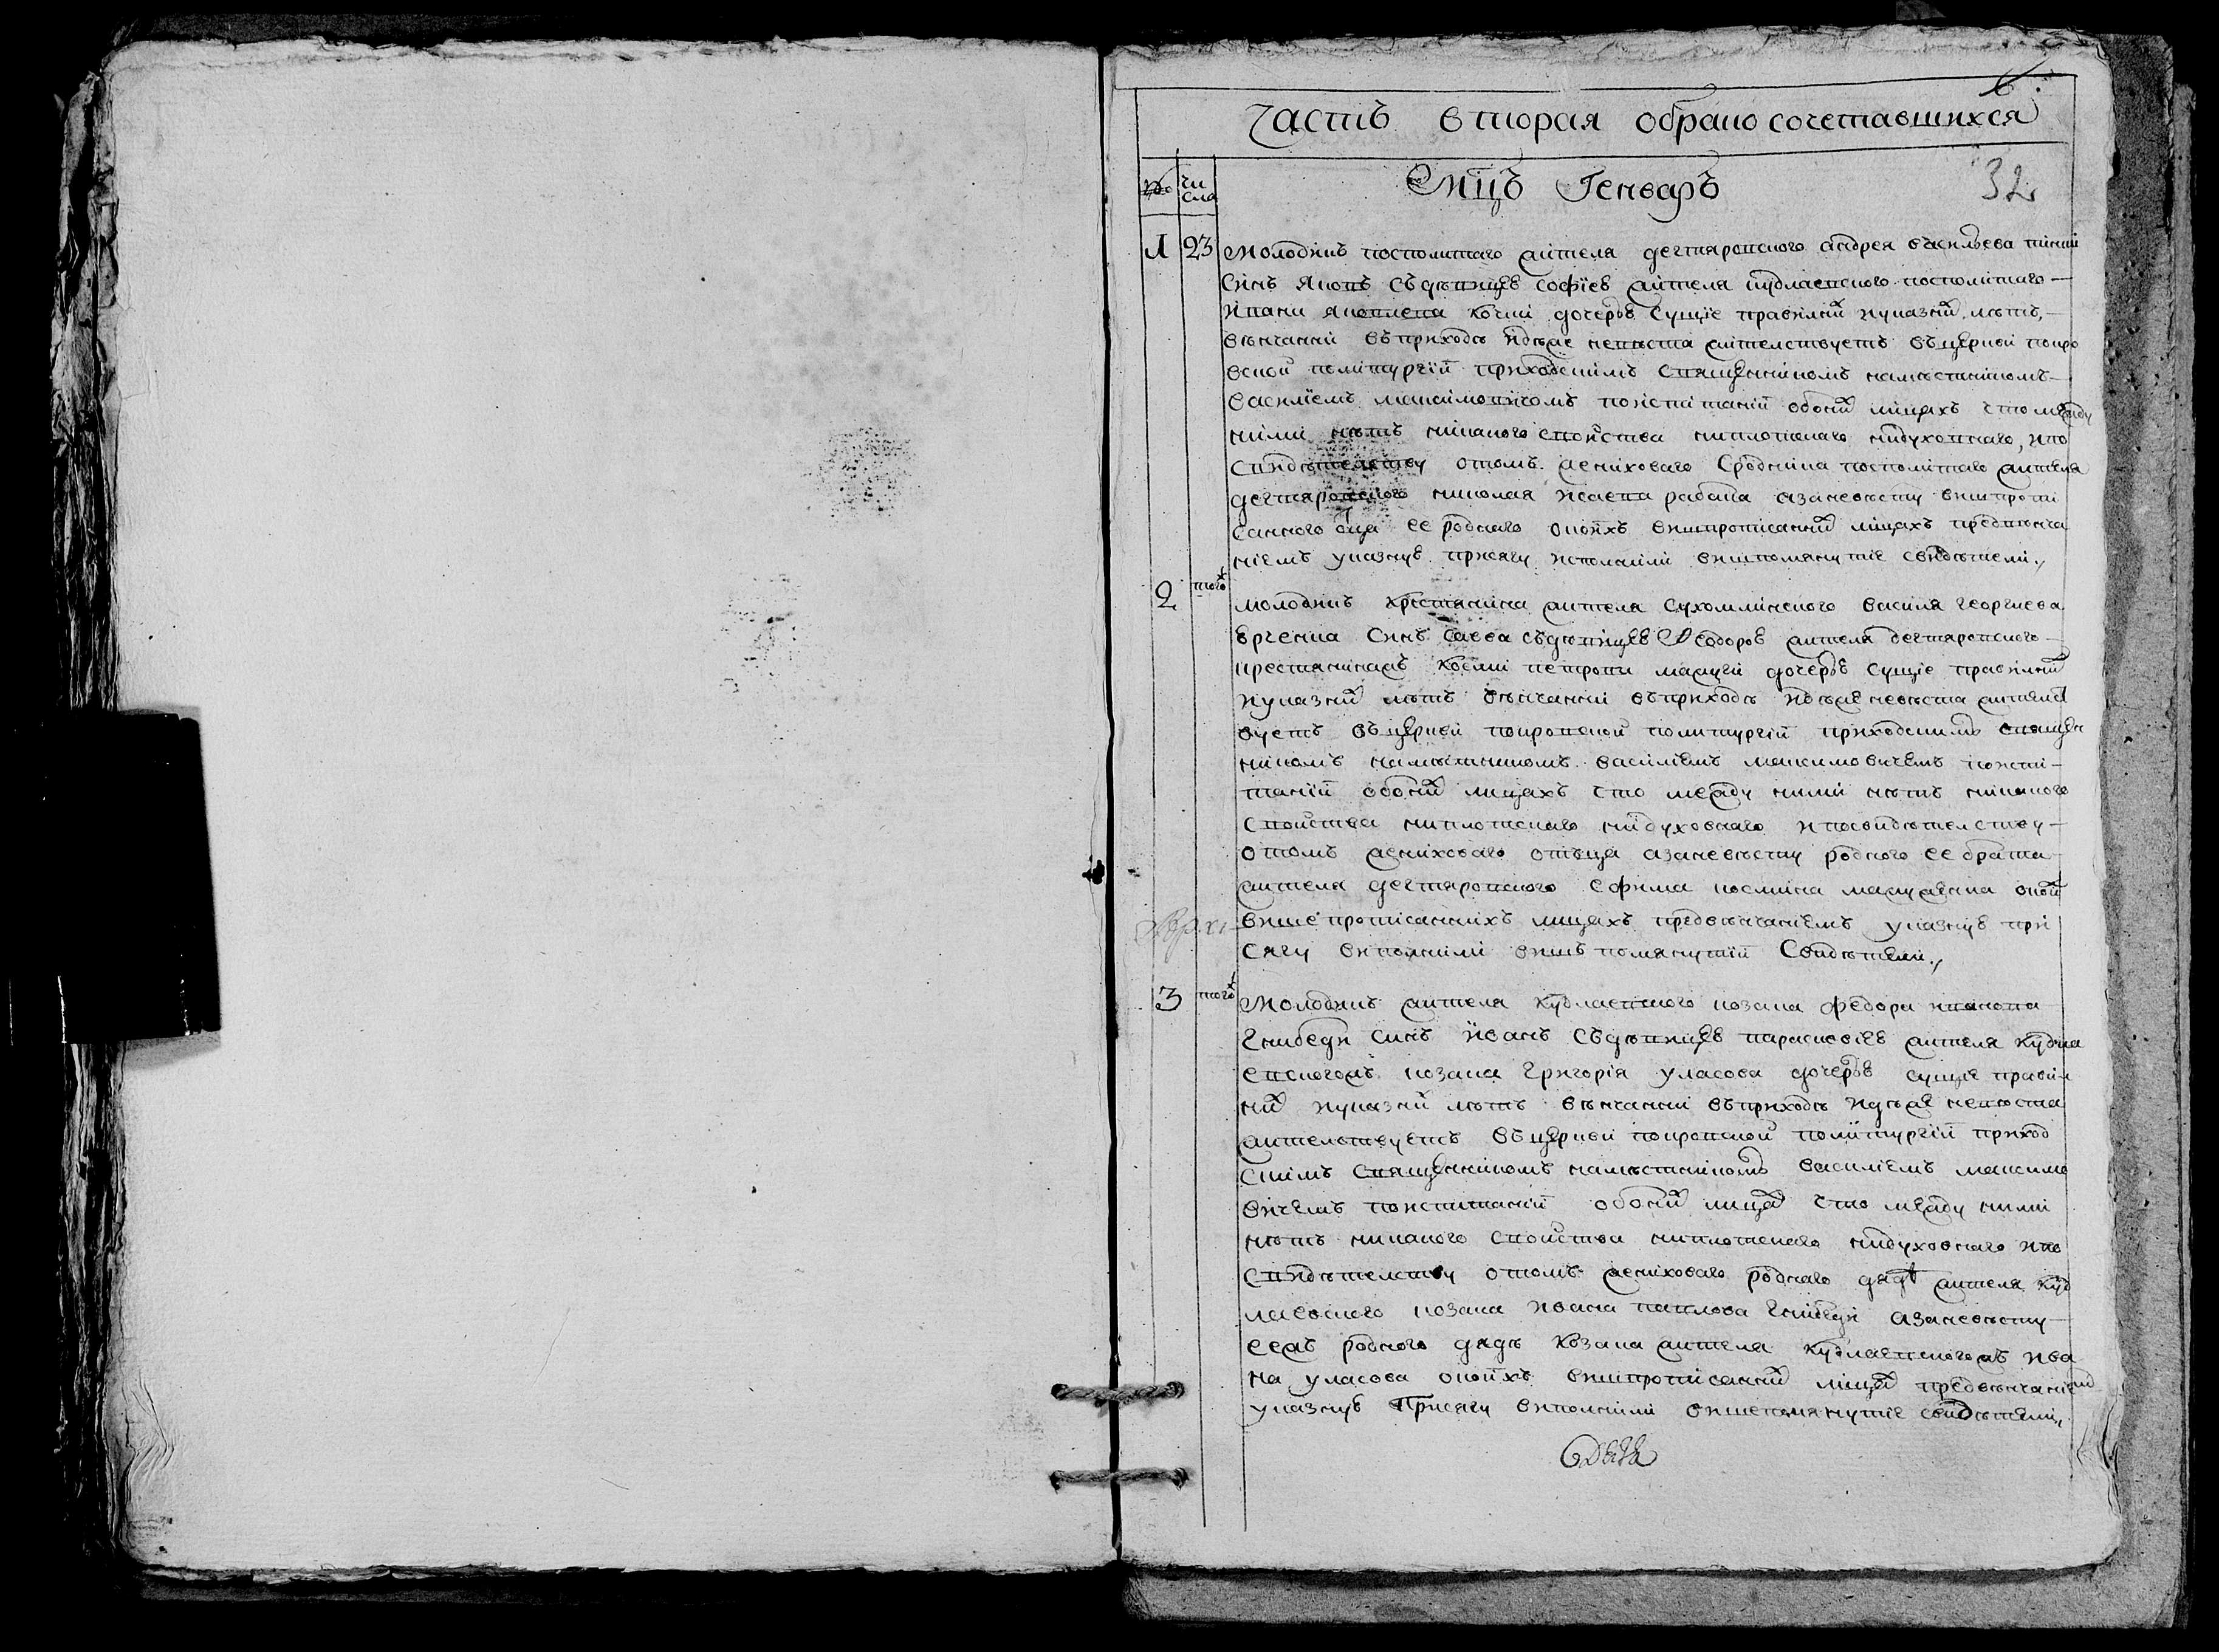 Часть вторая обрано сочетавшихся
Мцъ Генварь
32
№ чи
сла
1 23 Молодикъ посполитаго жителя дегтяровского андрея васильева
Синъ яковъ съ дѣвицев софїев жителя кудлаевского посполитаго
ивана яковлева дочеров сущїе правилних иуказних лѣтъ,
вѣнчанни въприходѣ идѣже невѣста жителствуетъ въцеркви покро
вской политургїи приходскимъ священникомъ намѣстникомъ
василїемъ максимовичомъ поиспитанїи обоних лицахъ что между
ними нѣтъ никакого свойства ниплотскаго нидуховнаго, ипо
свидѣтелству отомъ жениховаго сродника посполитаго жителя
дегтяровского николая исаева азаневѣсту вишпропи
санного оца ее родного оноихъ вишпрописанних лицахъ предвѣнча
нїемъ указнує присягу исполнили вишпомянутїе свидѣтели.,
2 тогож молодикъ крестянина жителя Сухомлинского василя георгиева
Синъ савва съдѣвицев Феодоров жителя дегтяровского
крестянинаж петрови дочеров сущїе правилних
иуказних лѣтъ вѣнчанни въприходѣ идѣже невѣста жителст
вуетъ въцеркви покровской политургїи приходскимъ священ
никомъ намѣстникомъ василїемъ максимовичемъ поиспи
танїи обоних лицахъ что между ними нѣтъ никакого
свойства ниплотскаго нидуховнаго ипосвидѣтелству
отомъ жениховаго отьца азаневѣсту родного ее брата
жителя дегтяровского ефима оной
више прописаннихъ лицахъ предвѣнчанїемъ указнує при
сягу виполнили вишъ помянутїи Свидѣтели.,
3 тогож Молодикъ жителя кудлаевского козака федора иванова
Гнибеди синъ иванъ Съдѣвицев параскевїев жителя кудла
евскогожъ козака григорїя уласова дочеров сущїе правил
них иуказних лѣтъ вѣнчанни въприходѣ идѣже невѣста
жителствуетъ въцеркви покровской политургїи приход
скимъ священникомъ намѣстникомъ василїемъ максимо
вичемъ поиспитанїи обоних лицах что между ними
нѣтъ никакого свойства ниплотскаго нидуховнаго ипо
свидѣтелству отомъ жениховаго родного дядѣ жителя куд
лаевского козака ивана павлова Гнибеди азаневѣсту
еежъ родного дядѣ козака жителя кудлаевскогожъ ива
на уласова оноихъ вишпрописанних лицах предвѣнчанїем
указнує присягу виполнили вишепомянутїе свидѣтели,